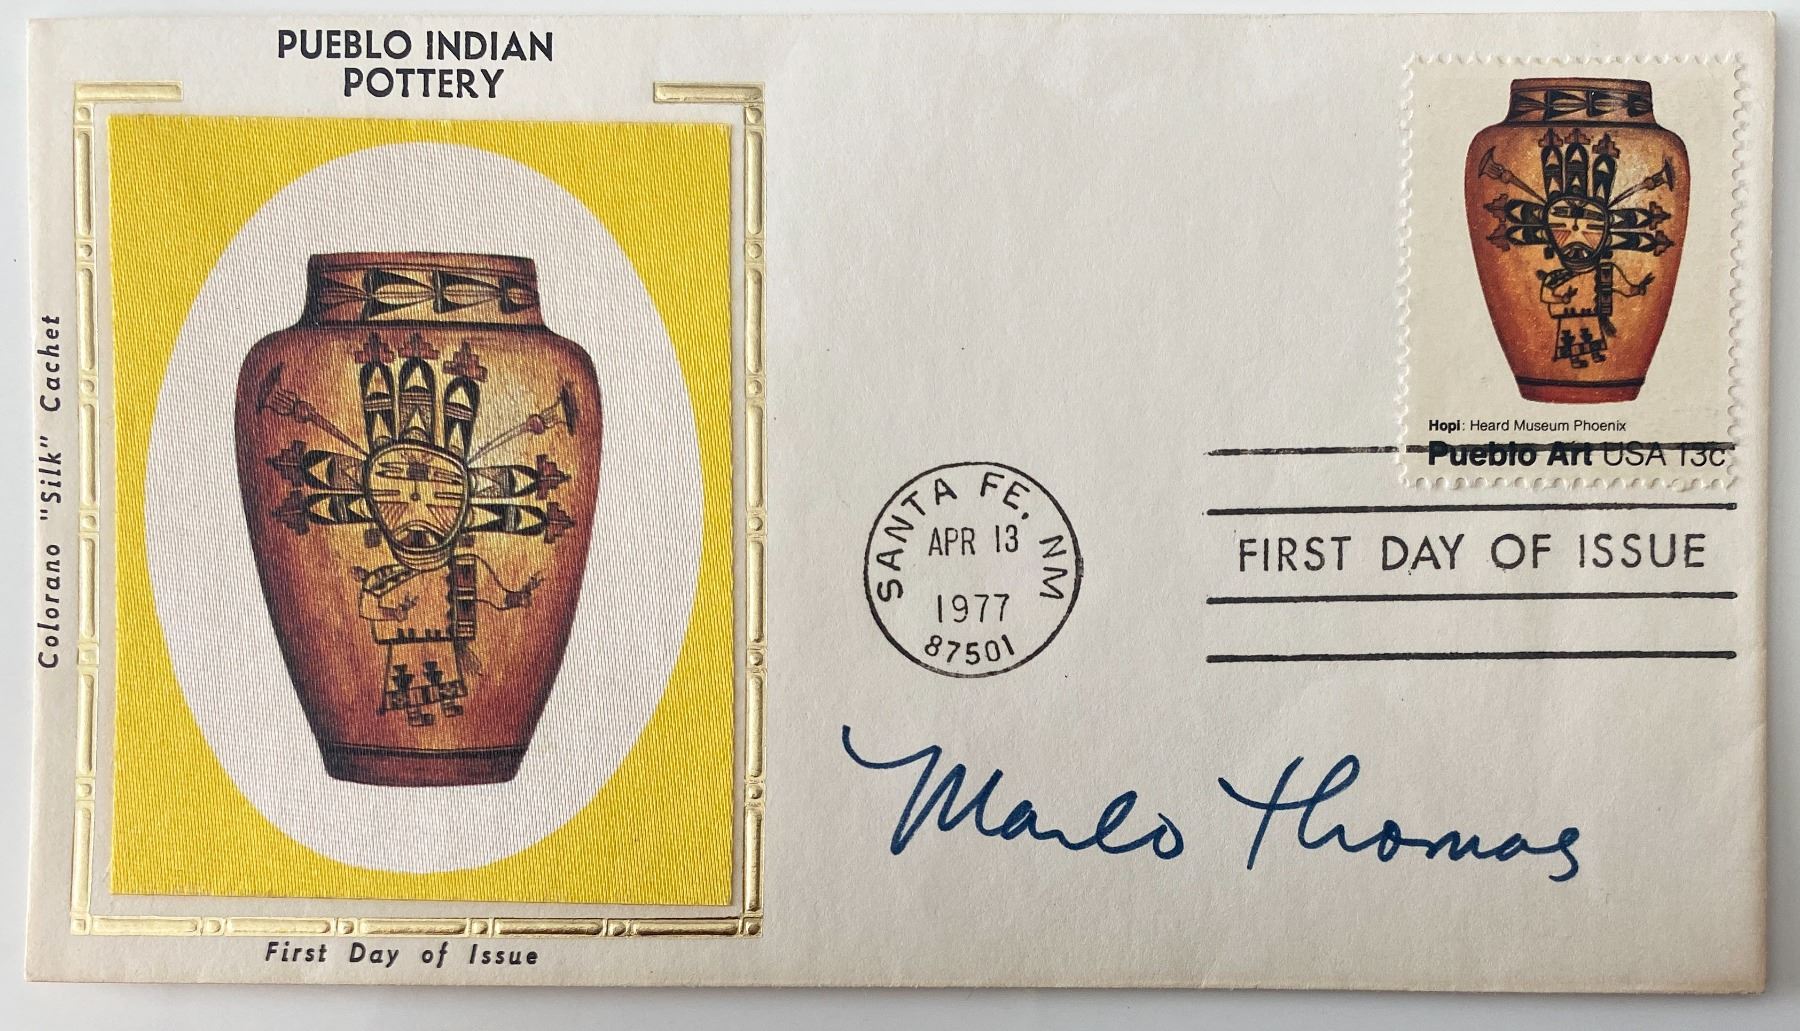 PUEBLO INDIAN
POTTERY
Colorano "Silk" Cachet
First Day of Issue
Hopi: Heard Museum Phoenix
Pueblo Art USA 13c
SANTA FE, NM
APR 13
1977
87501
FIRST DAY OF ISSUE
Marlo Thomas